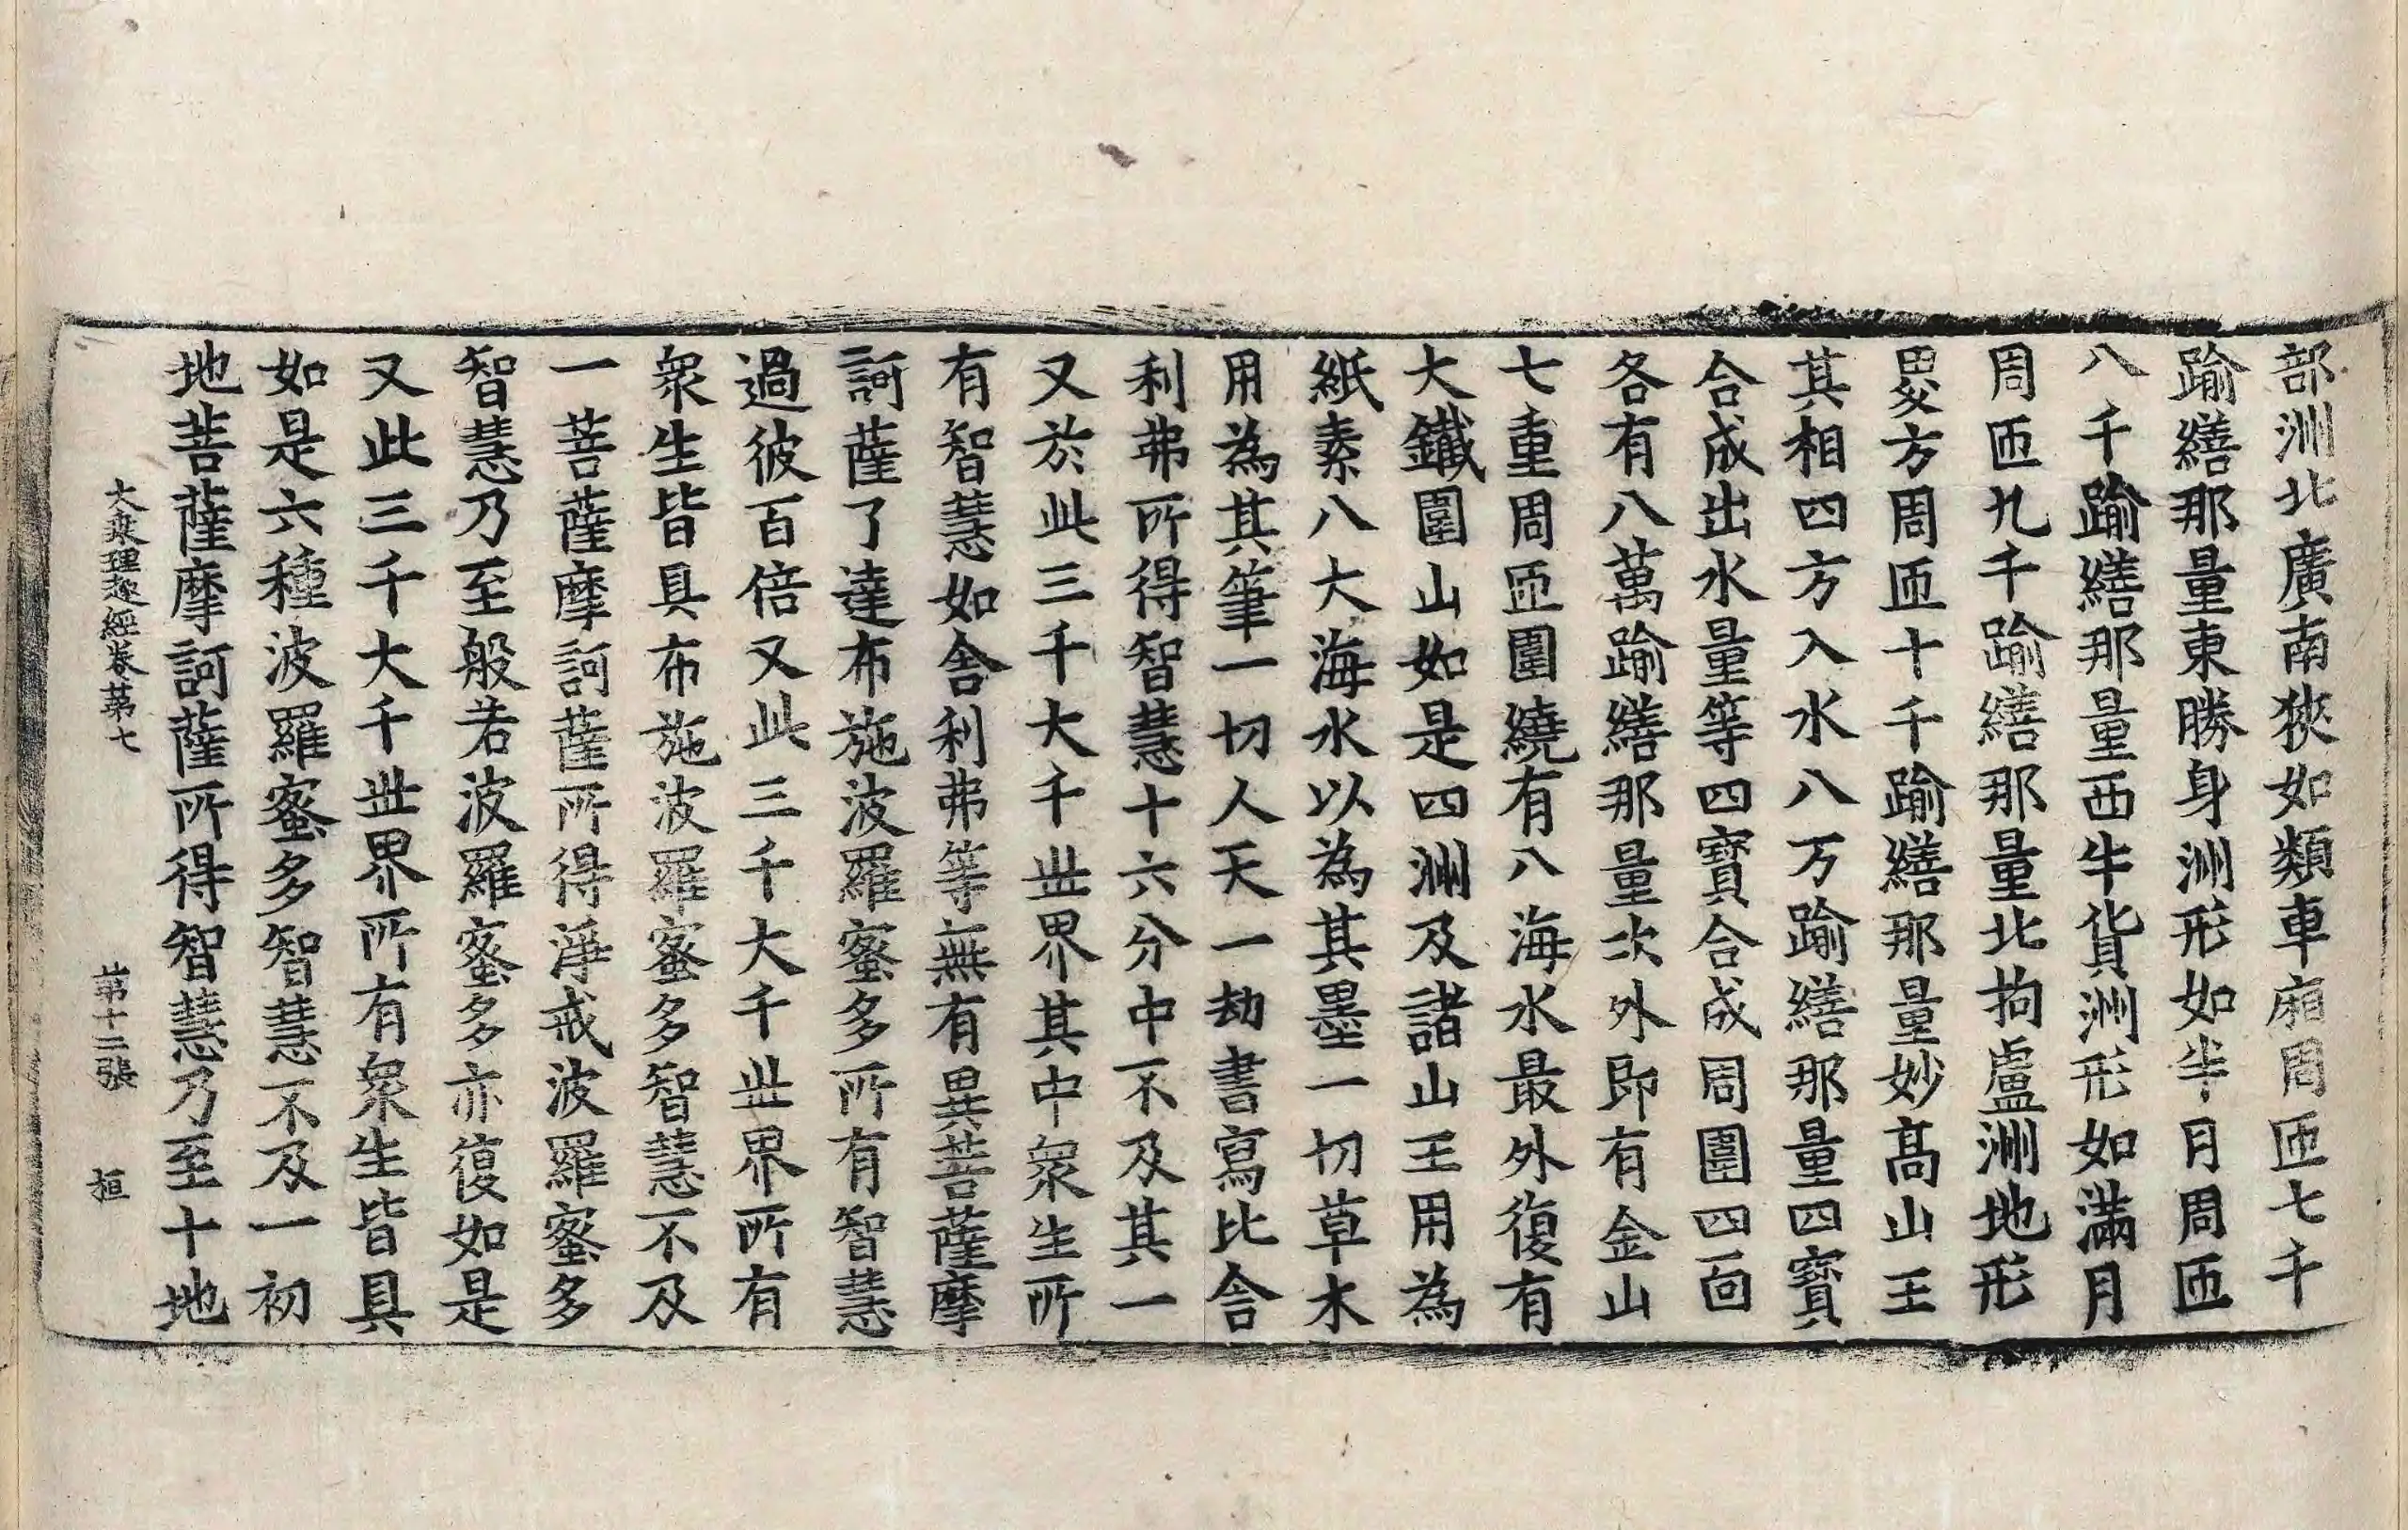 部洲北廣南狹如類車廂周匝七千
踰繕那量東勝身洲形如半月周匝
八千踰繕那量西牛貨洲形如滿月
周匝九千踰繕那量北拘盧洲地形
畟方周匝十千踰繕那量妙高山王
其相四方入水八万踰繕那量四寶
合成出水量等四寶合成周圍四面
各有八萬踰繕那量次外即有金山
七重周匝圍繞有八海水最外復有
大鐵圍山如是四洲及諸山王用為
紙素八大海水以為其墨一切草木
用為其筆一切人天一劫書寫比舍
利弗所得智慧十六分中不及其一
又於此三千大千世界其中眾生所
有智慧如舍利弗等無有異菩薩摩
訶薩了達布施波羅蜜多所有智慧
過彼百倍又此三千大千世界所有
眾生皆具布施波羅蜜多智慧不及
一菩薩摩訶薩所得淨戒波羅蜜多
智慧乃至般若波羅蜜多亦復如是
又此三千大千世界所有眾生皆具
如是六種波羅蜜多智慧不及一初
地菩薩摩訶薩所得智慧乃至十地
大乘理趣經卷第七 第十二張 桓